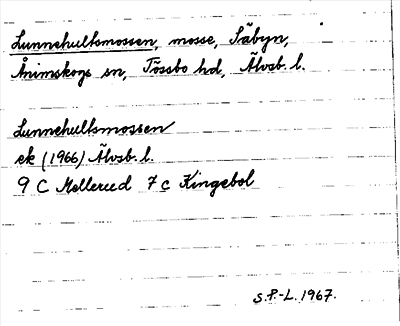 Lunnehultsmossen, mosse, Säbyn,
Ånimskogs sn, Tössbo hd, Älvsb. l.
Lunnehultsmossen
ek (1966) Älvsb. l.
9 C Mellerud 7 c Kingebol
S.P.-L. 1967.